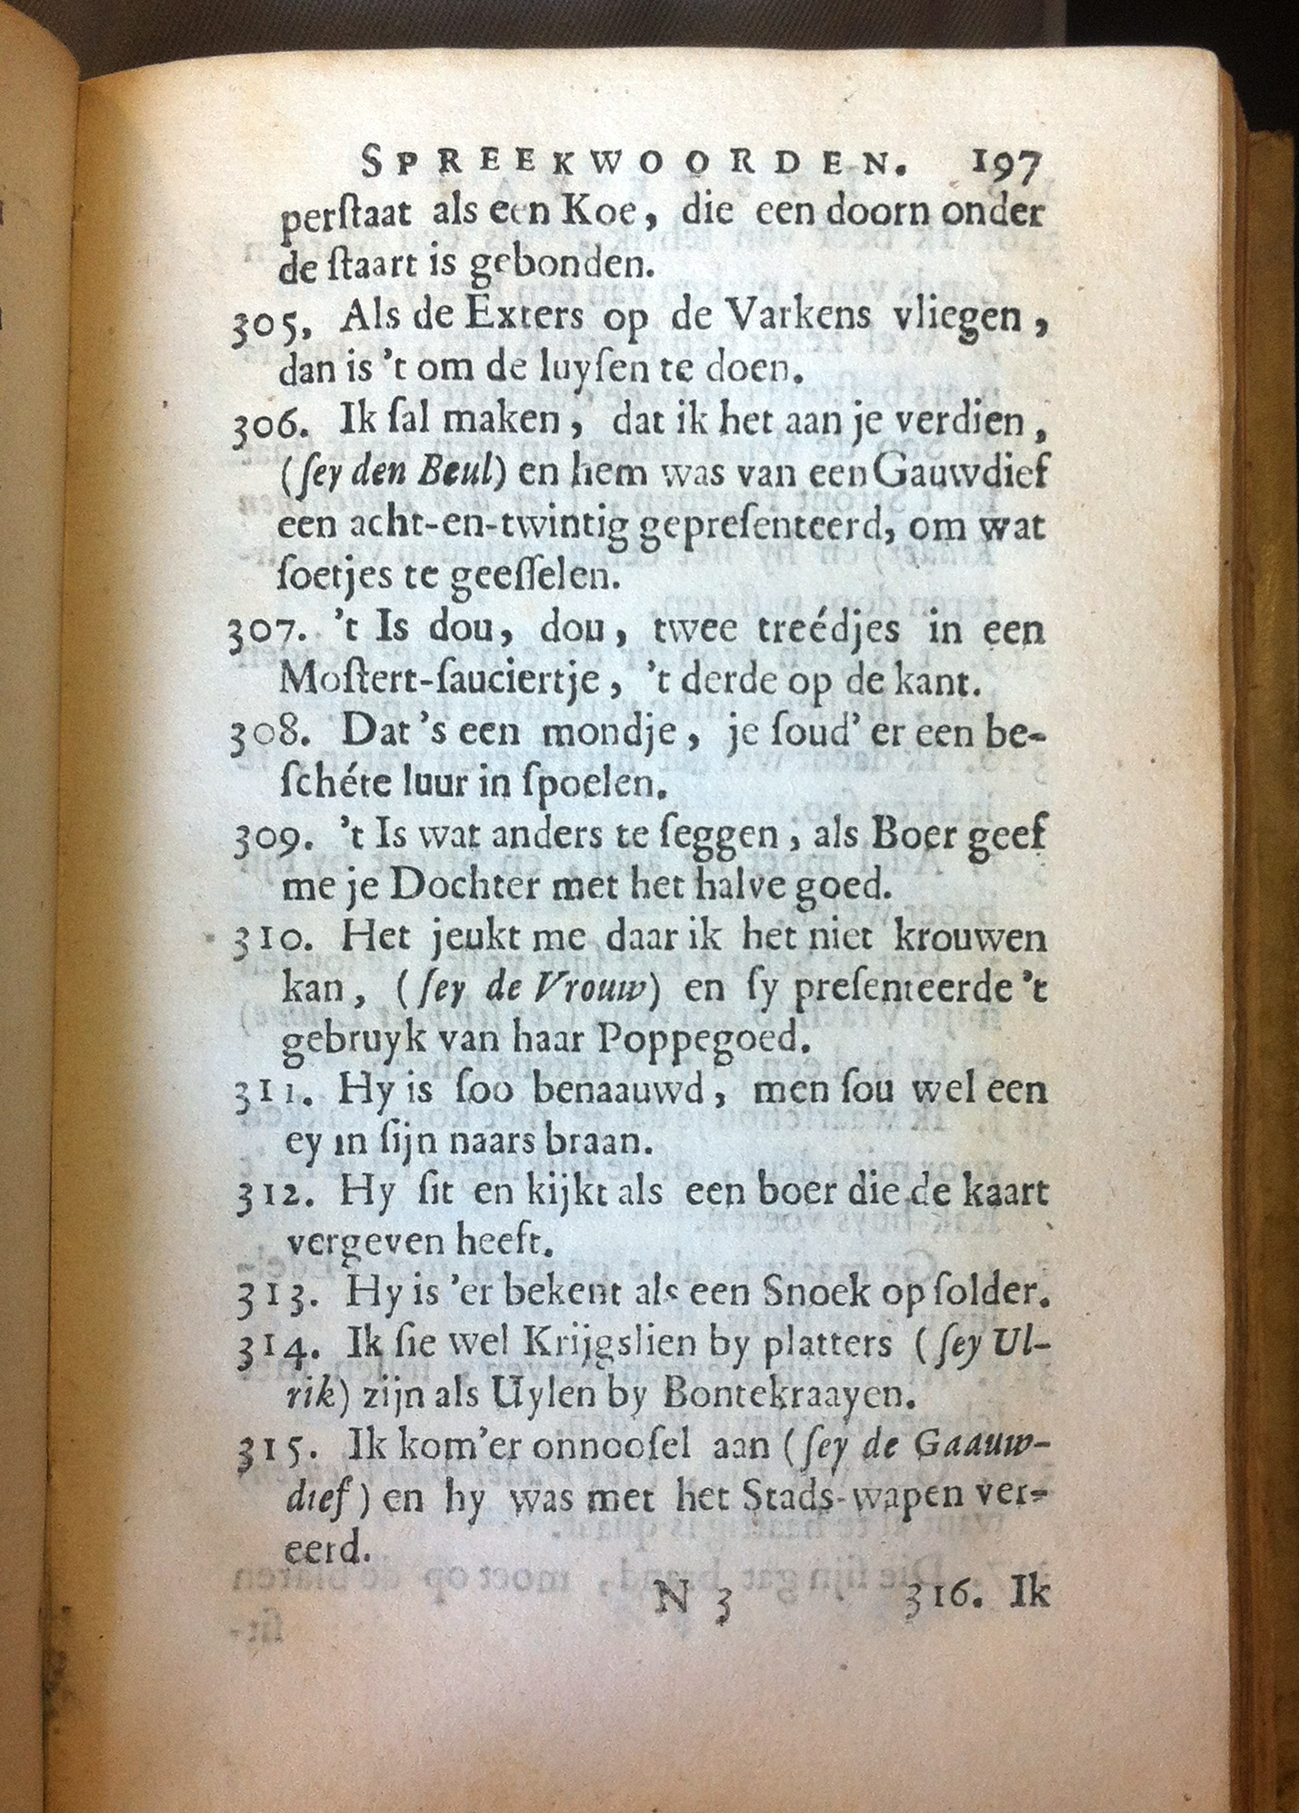 SPREEKWOORDEN. 197
perſtaat als een Koe, die een doorn onder
de ſtaart is gebonden.
305, Als de Exters op de Varkens vliegen,
dan is 't om de luyſen te doen.
306. Ik ſal maken, dat ik het aan je verdien,
(ſey den Beul) en hem was van een Gauwdief
een acht-en-twintig gepreſenteerd, om wat
ſoetjes te geeſſelen.
307. 't Is dou, dou, twee treédjes in een
Moſtert-ſauciertje, 't derde op de kant.
308. Dat 's een mondje, je ſoud' er een be-
ſchéte luur in ſpoelen.
309. 't Is wat anders te ſeggen, als Boer geef
me je Dochter met het halve goed.
310. Het jeukt me daar ik het niet krouwen
kan, (ſey de Vrouw) en ſy preſenteerde 't
gebruyk van haar Poppegoed.
311. Hy is ſoo benaauwd, men ſou wel een
ey in ſijn naars braan.
312. Hy ſit en kijkt als een boer die de kaart
vergeven heeft.
313. Hy is 'er bekent als een Snoek op ſolder.
314. Ik ſie wel Krijgslien by platters (ſey Ul-
rik) zijn als Uylen by Bontekraayen.
315. Ik kom'er onnooſel aan (ſey de Gaauw-
dief) en hy was met het Stads-wapen ver-
eerd.
N 3 316. Ik